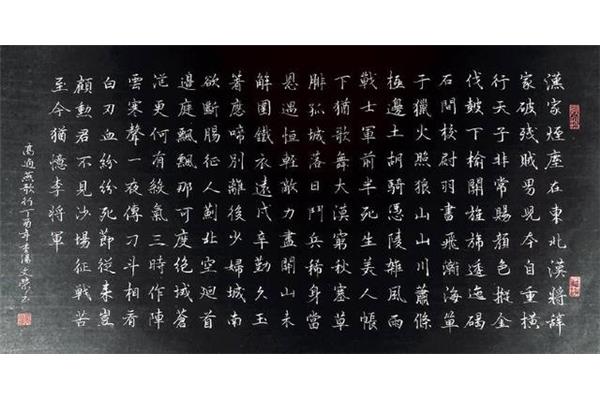 漢家煙塵在東北漢將辭
家破殘賊男兒本自重橫
行天子非常賜顏色摐金
伐鼓下榆關旌旆逶迤碣
石間校尉羽書飛瀚海單
于獵火照狼山山川蕭條
極邊土胡騎憑陵雜風雨
戰士軍前半死生美人帳
下猶歌舞大漠窮秋塞草
腓孤城落日鬥兵稀身當
恩遇恒輕敵力盡關山未
解圍鐵衣遠戍辛勤久玉
箸應啼別離後少婦城南
欲斷腸征人薊北空迴首
邊庭飄飄那可度絕域蒼
茫更何有殺氣三時作陣
雲寒聲一夜傳刁斗相看
白刃血紛紛死節從來豈
顧勳君不見沙場征戰苦
至今猶憶李將軍
高適燕歌行丁酉年